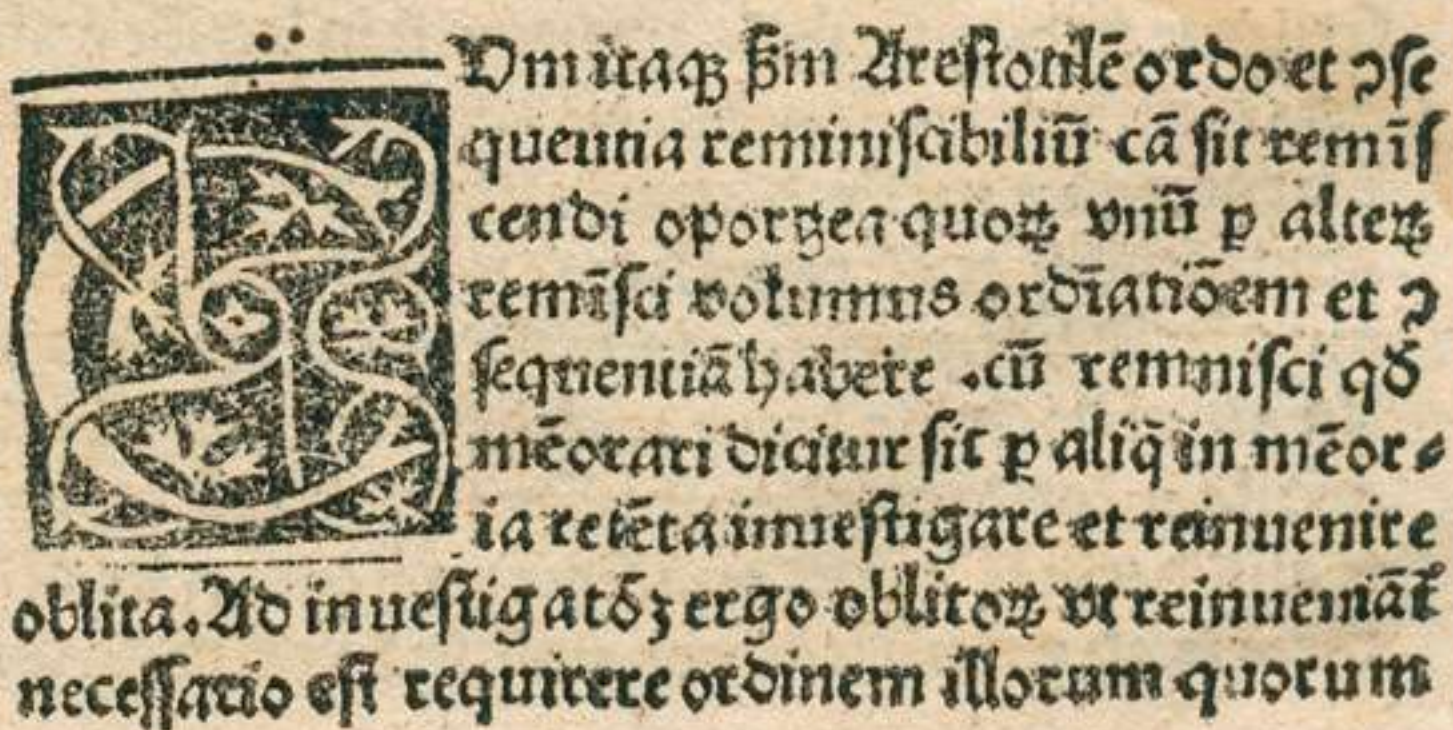 CUm itaqꝫ ẜm Arestotilē ordo et ↄse
quentia reminiscibiliū cā sit remīs
cendi oporgea quoꝝ vnū ꝑ alteꝝ
remīsci volumus ordīatiōem et ↄ
sequentiā habere .cū remnisci qđ
mēorari dicitur sit ꝑ aliq̄ in mēor⸗
ia retēta inuestigare et reinuenire
oblita. Ad inuestigatōꝫ ergo oblitoꝝ vt reinueniāt᷑
necessario est requirere ordinem illorum quorum